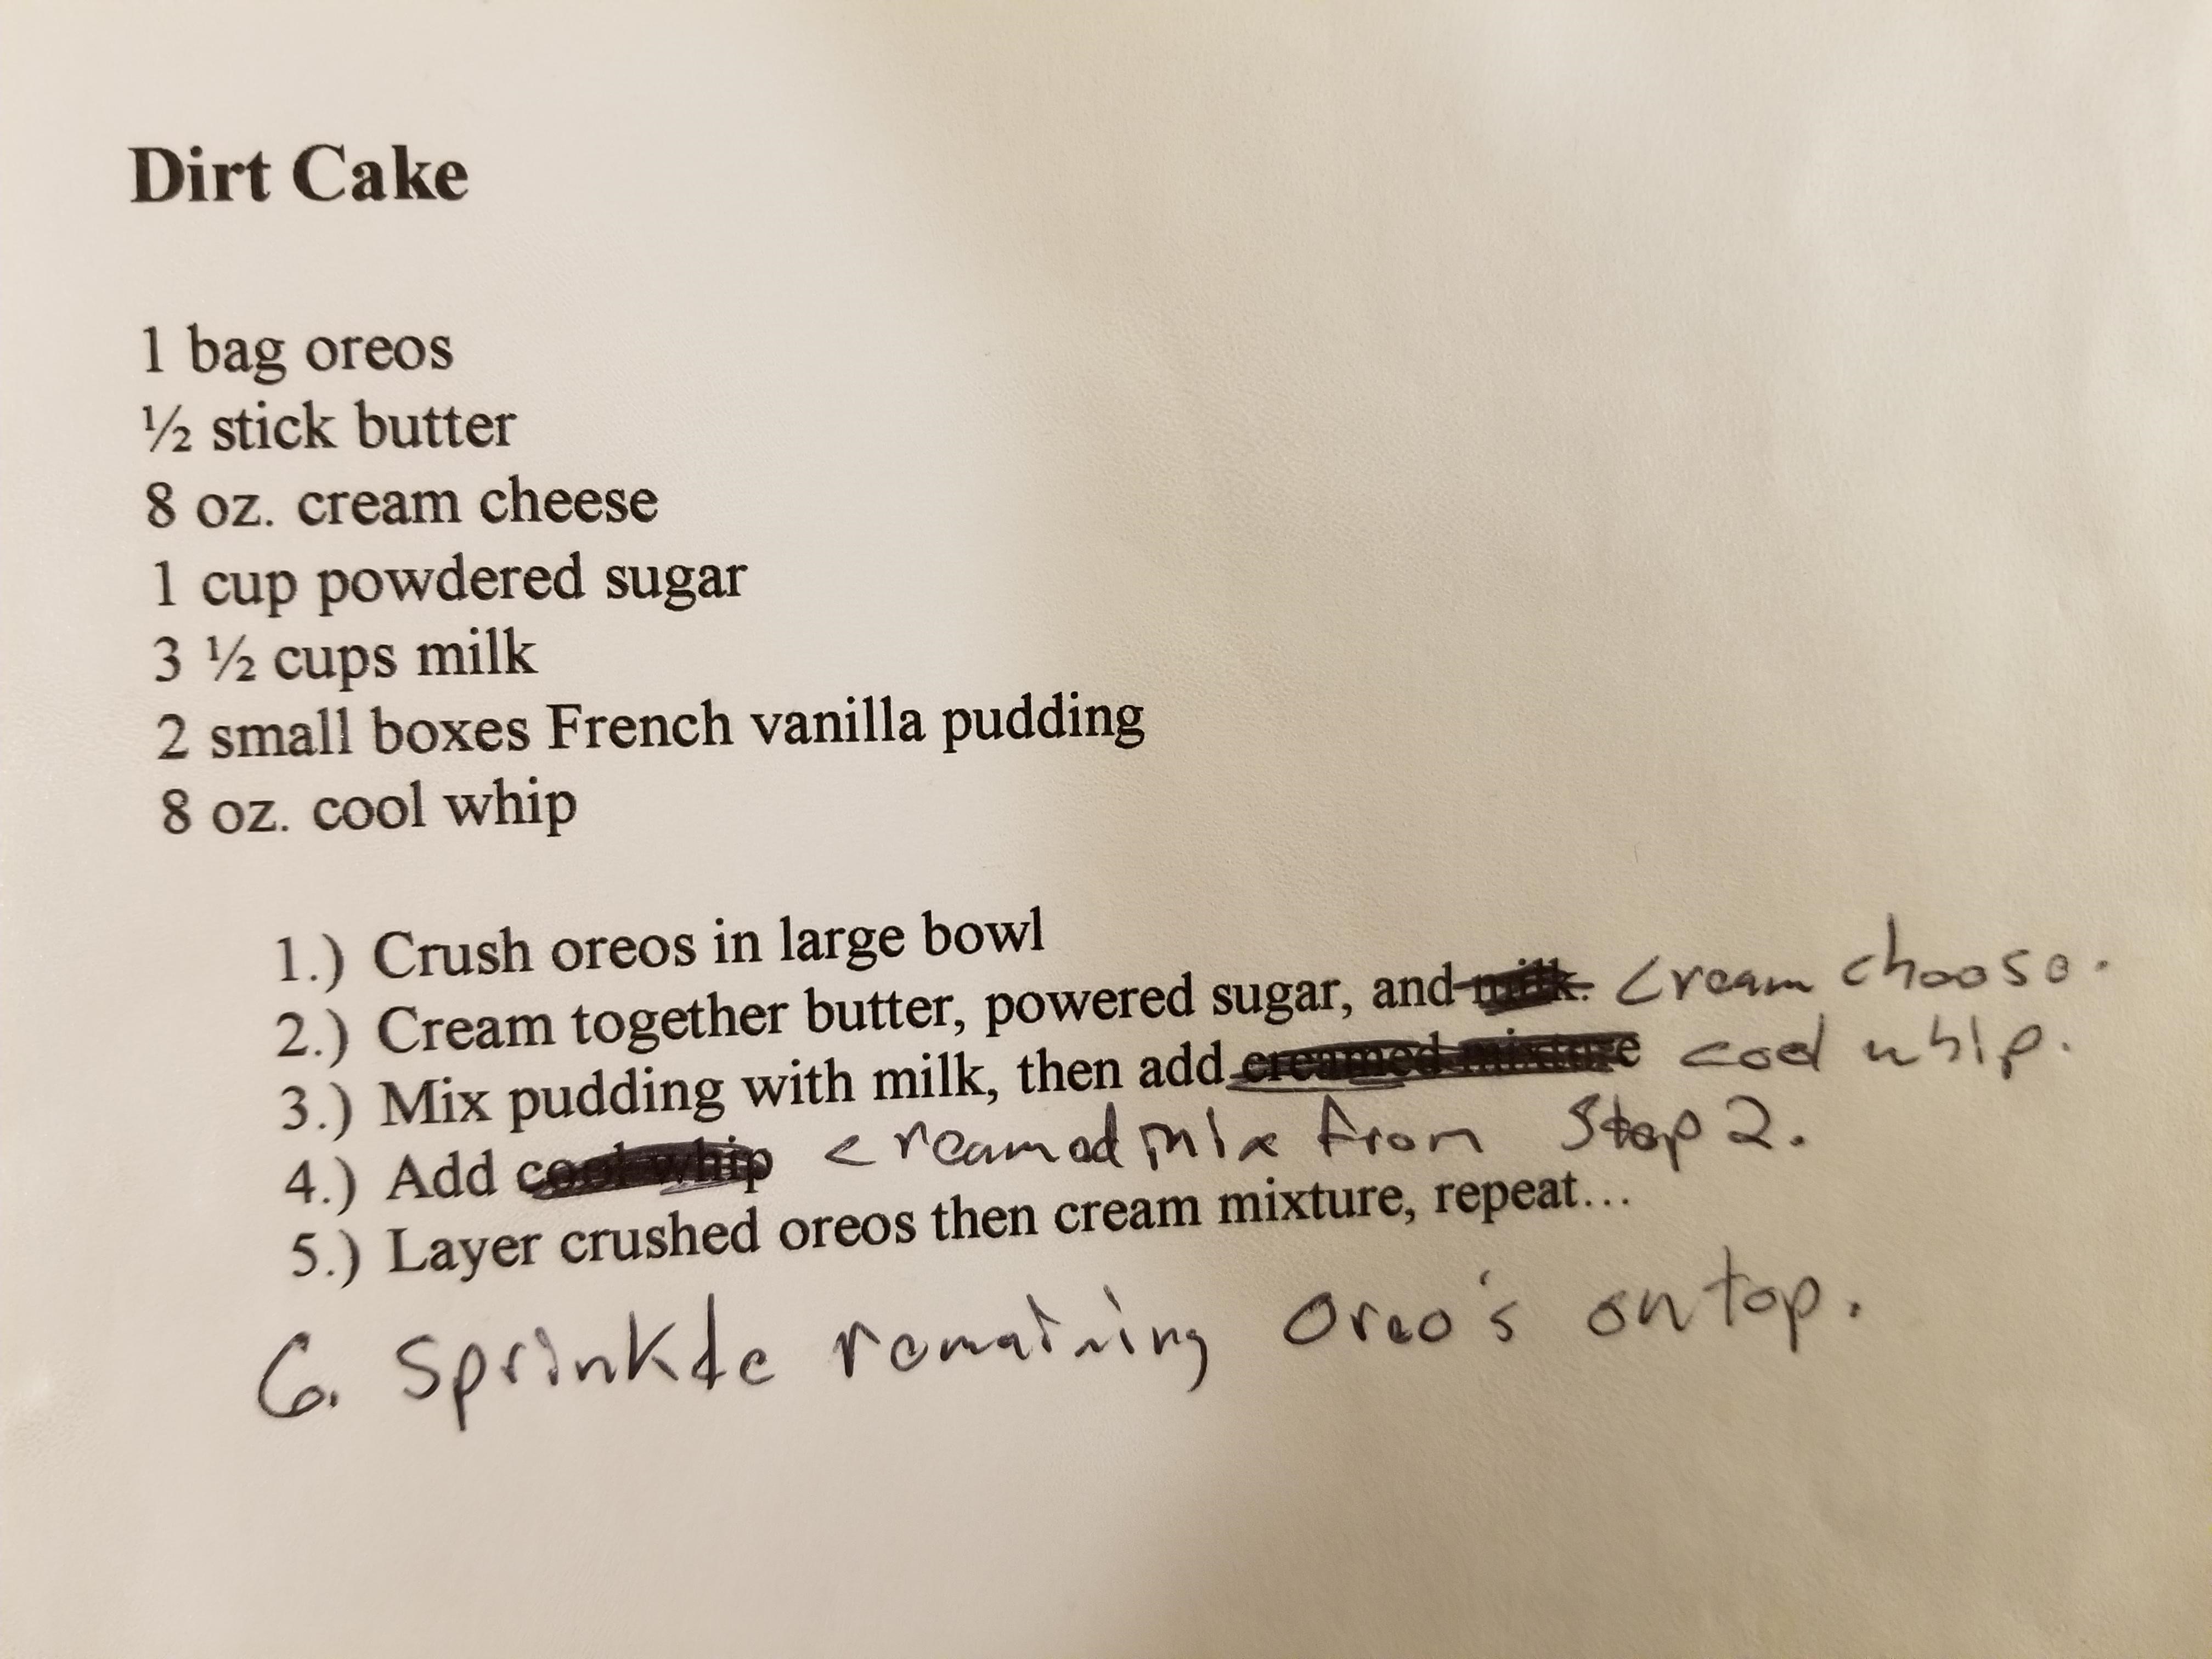 Dirt Cake
1 bag oreos
½ stick butter
8 oz. cream cheese
1 cup powdered sugar
3 ½ cups milk
2 small boxes French vanilla pudding
8 oz. cool whip
1.) Crush oreos in large bowl
2.) Cream together butter, powered sugar, and milk. cream cheese.
3.) Mix pudding with milk, then add creamed mixture cool whip.
4.) Add cool whip creamed mix from Step 2.
5.) Layer crushed oreos then cream mixture, repeat...
6. Sprinkle remaining Oreo's on top.